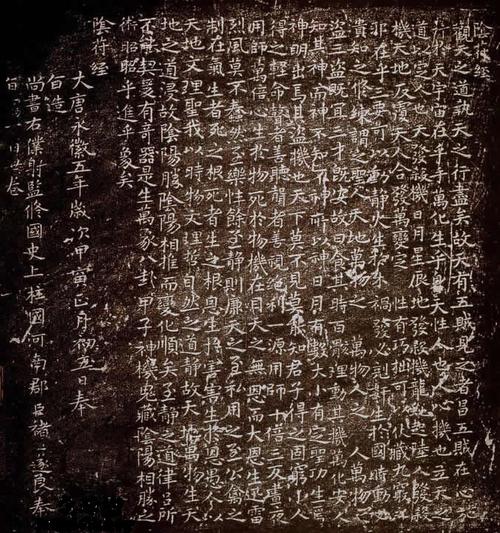 陰符經
觀天之道執天之行盡矣故天有五賊見之者昌五賊在心施
行於天宇宙在乎手萬化生乎天性人也心機也立天之
道以定人也天發殺機日月星辰地發殺機龍陸人發殺
機天地反覆天人合發萬變定性有巧拙可以伏藏九竅
非在乎三要可以動靜火生於木禍發必剋姦生於國時動必
知之修練謂之聖人天地萬物之萬物人之人萬物之
盜三盜既宜三才既安故曰食其時百骸理動其機萬化安人
知其神而神不知不神所以神日月有數大小有定聖功生焉
神明出焉其盜機也天下莫不見莫能知君子得之固窮小人
得之輕命瞽者善聽聾者善視絕利一源用師十倍三反晝夜
用師萬倍心生於物死於物機在目天之無恩而大恩生迅雷
烈風莫不蠢然至樂性餘至靜則廉天之至私用之至公禽之
制在氣生者死之根死者生之根恩生於害害生於恩愚人以
天地文理聖我以時物文理哲自然之道靜故天地萬物生天
地之道浸故陰陽勝陰陽相推而變化順矣至靜之道律呂所
不能契爰有奇器是生萬象八卦甲子神機鬼藏陰陽相勝之
術昭昭乎進乎象矣
陰符經
大唐永徽五年歲次甲寅正月初五日奉
旨造
尚書右僕射監修國史上柱國河南郡臣諸遂良奉
旨日